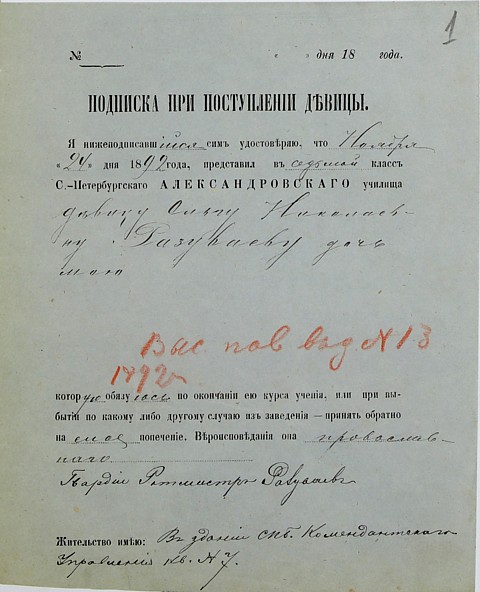 1
№ « » дня 18 года.
ПОДПИСКА ПРИ ПОСТУПЛЕНІИ ДѢВИЦЫ.
Я нижеподписавшійся симъ удостовѣряю, что Ноября
«24» дня 1892 года, представил въ седьмой классъ
С.-Петербургскаго АЛЕКСАНДРОВСКАГО училища
дѣвицу Ольгу Николаев-
ну Разуваеву дочь
мою
Выс пов вход № 13
1892
которую обязуюсь по окончаніи ею курса ученія, или при вы-
бытіи по какому либо другому случаю изъ заведенія — принять обратно
на мое попеченіе. Вѣроисповѣданія она провослав-
наго
Гвардіи Ротмистръ Разуваевъ
Жительство имѣю: Въ зданіи СПб. Комендантскаго
Управленія кв. № 7.